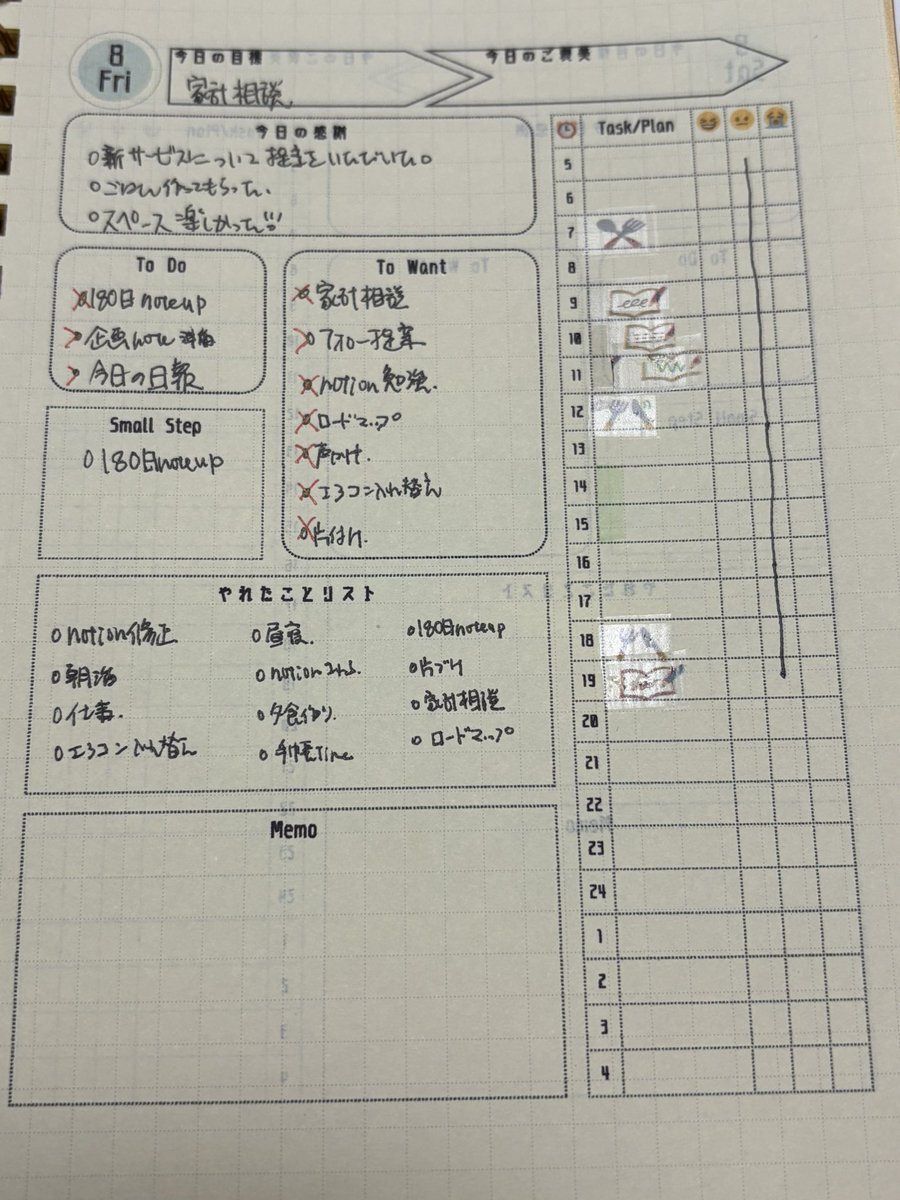 8
Fri
今日の目標
家計相談
今日のご褒美
今日の感謝
○新サービスについて提案をいただいた。
○ごはん作ってもらった。
○スペース楽しかった!!!
To Do
○180日noteup
○企画note 準備
○今日の日報
To Want
○家計相談
○フォロー提案
○notion勉強.
○ロードマップ
○声かけ.
○エアコン入れ替え
○片付け.
Small Step
○180日noteup
やれたことリスト
○notion修正
○朝活
○仕事.
○エアコン入れ替え
○昼寝.
○夕食作り.
○手帳Time
○180日noteup
○片づけ
○家計相談
○ロードマップ
Memo
Task/Plan
5
6
7
8
9
10
11
12
13
14
15
16
17
18
19
20
21
22
23
24
1
2
3
4